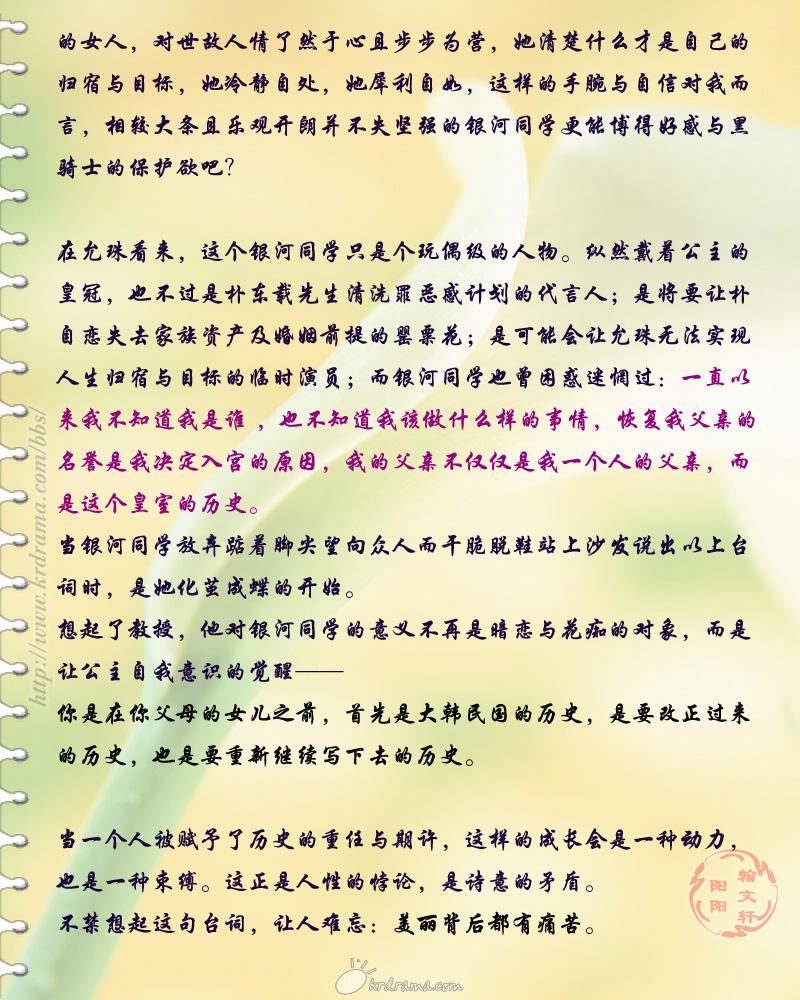 的女人，对世故人情了然于心且步步为营，她清楚什么才是自己的
归宿与目标，她冷静自处，她犀利自如，这样的手腕与自信对我而
言，相较大条且乐观开朗并不失坚强的银河同学更能博得好感与黑
骑士的保护欲吧？
在允珠看来，这个银河同学只是个玩偶级的人物。纵然戴着公主的
皇冠，也不过是朴东载先生清洗罪恶感计划的代言人；是将要让朴
自恋失去家族资产及婚姻前提的罂粟花；是可能会让允珠无法实现
人生归宿与目标的临时演员；而银河同学也曾困惑迷惘过：一直以
来我不知道我是谁，也不知道我该做什么样的事情，恢复我父亲的
名誉是我决定入宫的原因，我的父亲不仅仅是我一个人的父亲，而
是这个皇室的历史。
当银河同学放弃踮着脚尖望向众人而干脆脱鞋站上沙发说出以上台
词时，是她化茧成蝶的开始。
想起了教授，他对银河同学的意义不再是暗恋与花痴的对象，而是
让公主自我意识的觉醒——
你是在你父母的女儿之前，首先是大韩民国的历史，是要改正过来
的历史，也是要重新继续写下去的历史。
当一个人被赋予了历史的重任与期许，这样的成长会是一种动力，
也是一种束缚。这正是人性的悖论，是诗意的矛盾。
不禁想起这句台词，让人难忘：美丽背后都有痛苦。
http://www.krdrama.com/bbs/
翰文轩
阳阳
krdrama.com